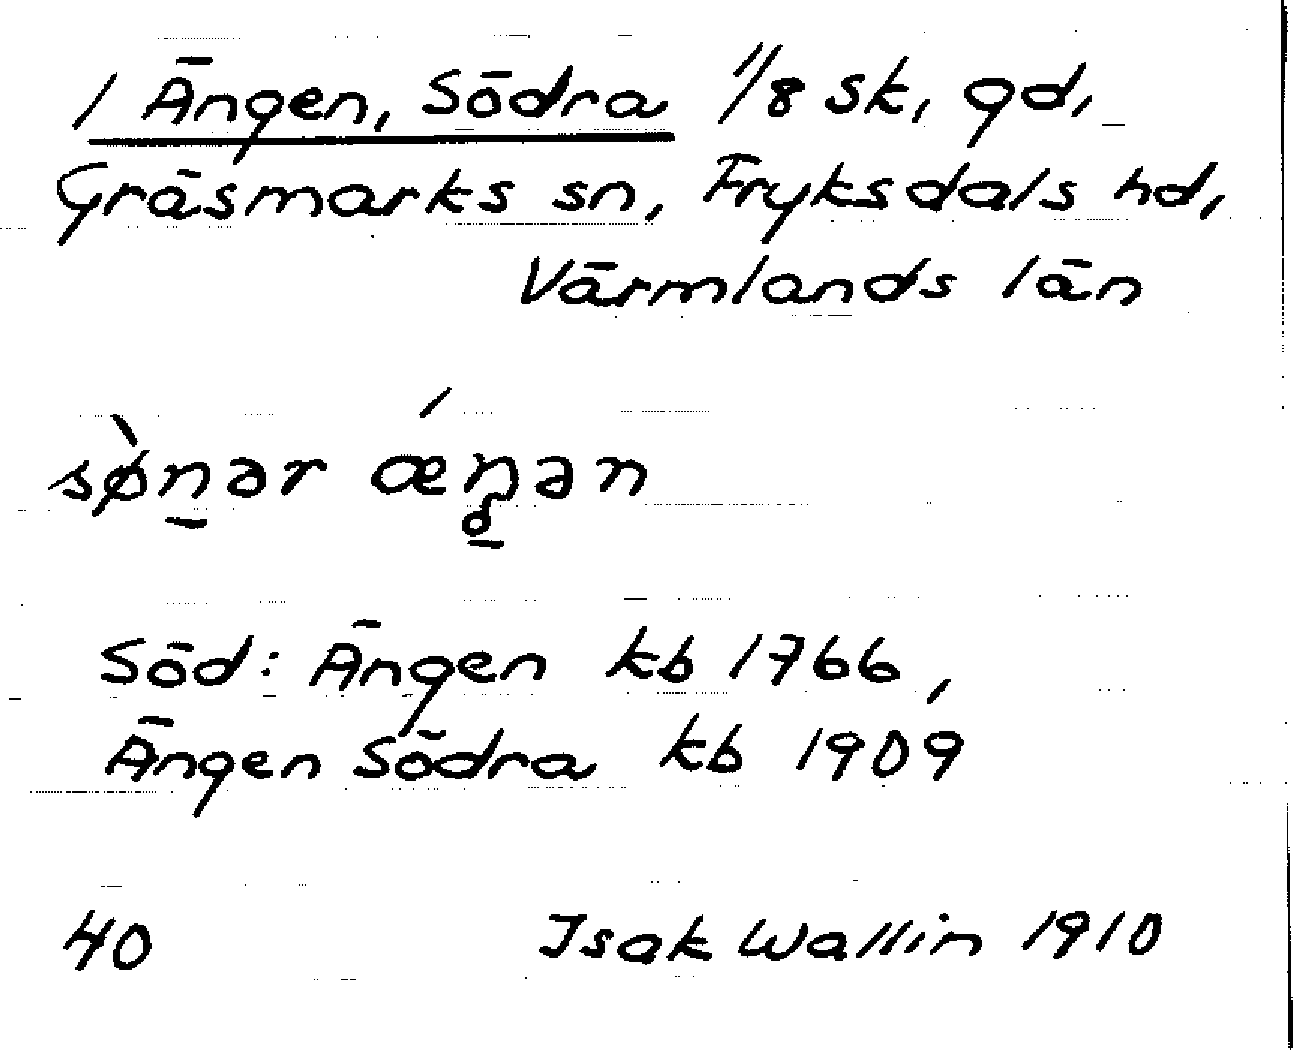 1 Ängen, Södra 1/8 sk, gd,
Gräsmarks sn, Fryksdals hd,
Värmlands län
sø̀n̠ər ǽŋ̠ən
Söd: Ängen kb 1766,
Ängen Södra kb 1909
40 Isak Wallin 1910